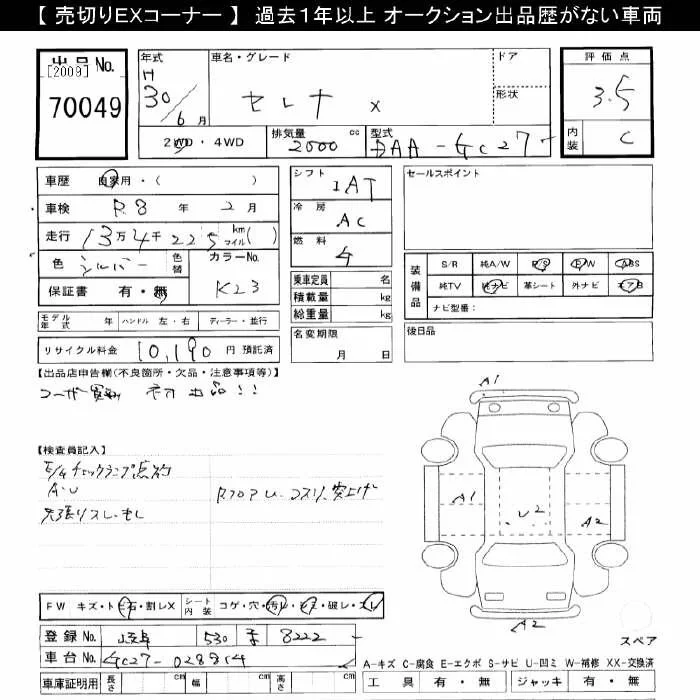 【 売切りEXコーナー 】 過去1年以上 オークション出品歴がない車両
出品 No. [2009] 70049
年式 H 30/6月
車名・グレード セレナ x
ドア
形状
2WD・4WD
排気量 2000 cc
型式 DAA-GC27
評価点 3.5
内装 C
車歴 自家用・( )
車検 R8 年 2 月
走行 13万4千225 km マイル( )
色 シルバー 色替
カラーNo. K23
保証書 有・無
モデル年式 年 ハンドル 左・右 ディーラー・並行
リサイクル料金 10,190 円 預託済
シフト IAT
冷房 AC
燃料 G
乗車定員 名
積載量 kg
総重量 kg
名変期限 月 日
セールスポイント
装備品 S/R 純A/W P/S P/W ABS
純TV 純ナビ 革シート 外ナビ エアB
ナビ型番：
後日品
【出品店申告欄(不良箇所・欠品・注意事項等)】
ユーザー買取 初出品!!
【検査員記入】
E/Gチェックランプ点灯
A・U
天張りスレ・
RフロアU・コスリ、突上げ
A1
A1
U2
A2
A2
スペア
FW キズ・トビ石・割レX シート内装 コゲ・穴・汚レ・シミ・破レ・スレ
登録 No. 岐阜 530 す 8222
車台 No. GC27-028814
車庫証明用 長さ cm 幅 cm 高さ cm
A-キズ C-腐食 E-エクボ S-サビ U-凹ミ W-補修 XX-交換済
工具 有・無 ジャッキ 有・無